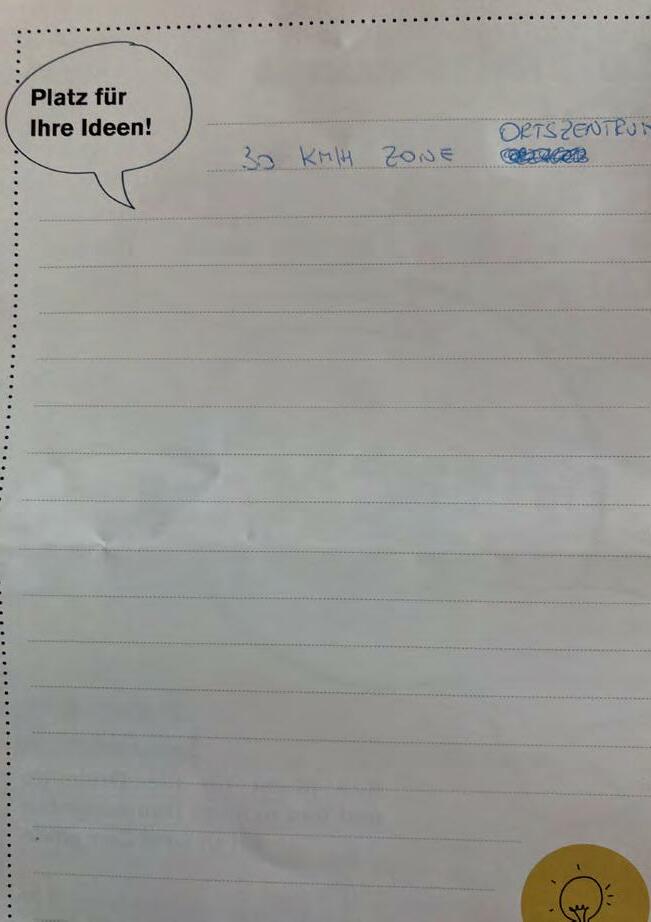 Platz für
Ihre Ideen!
ORTSZENTRUM
30 KM/H ZONE